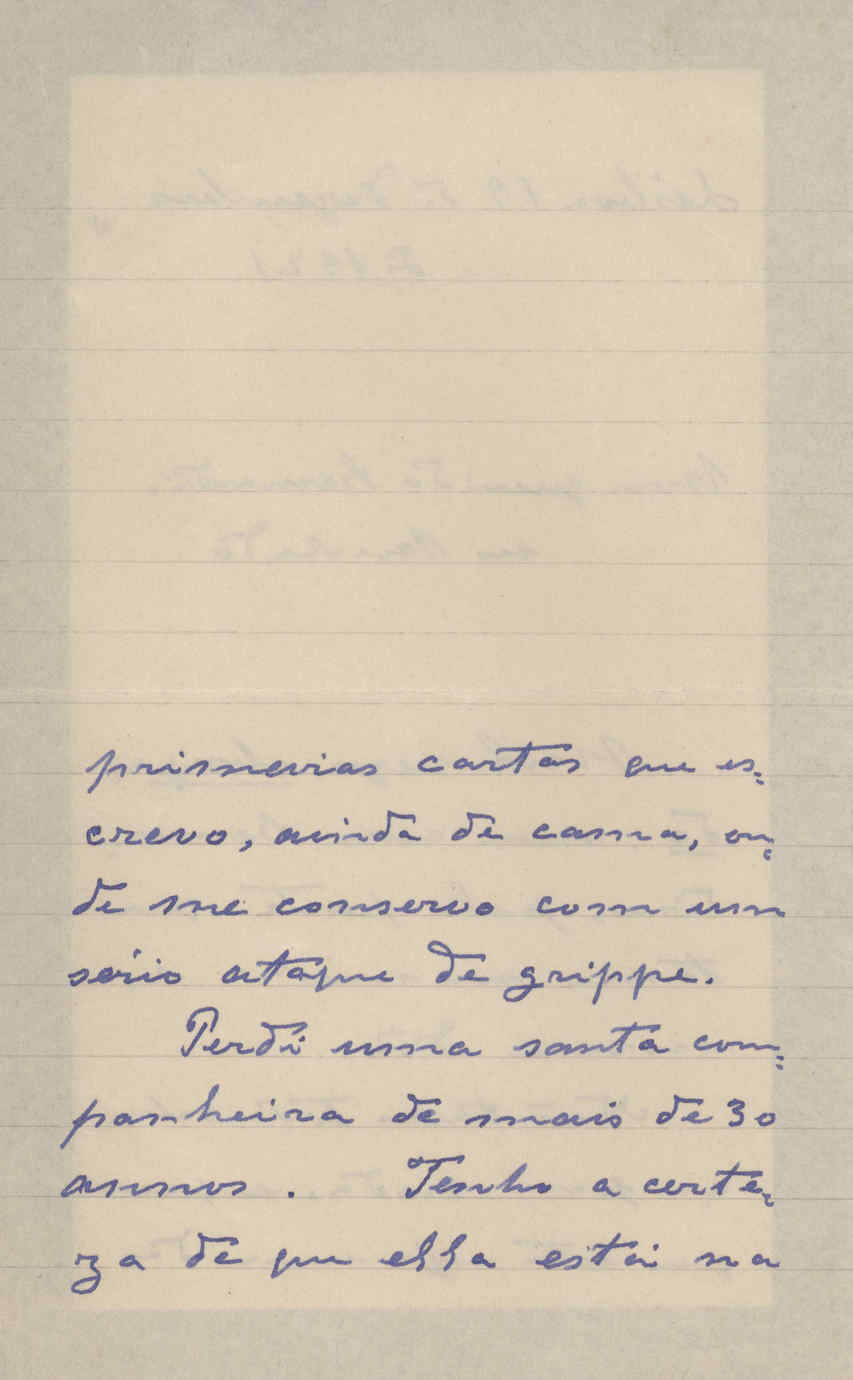 primeiras cartas que es=
crevo, ainda de cama, on=
de me conservo com um
sério ataque de grippe.
Perdi uma santa com=
panheira de mais de 30
annos. Tenho a certe=
za de que ella está na